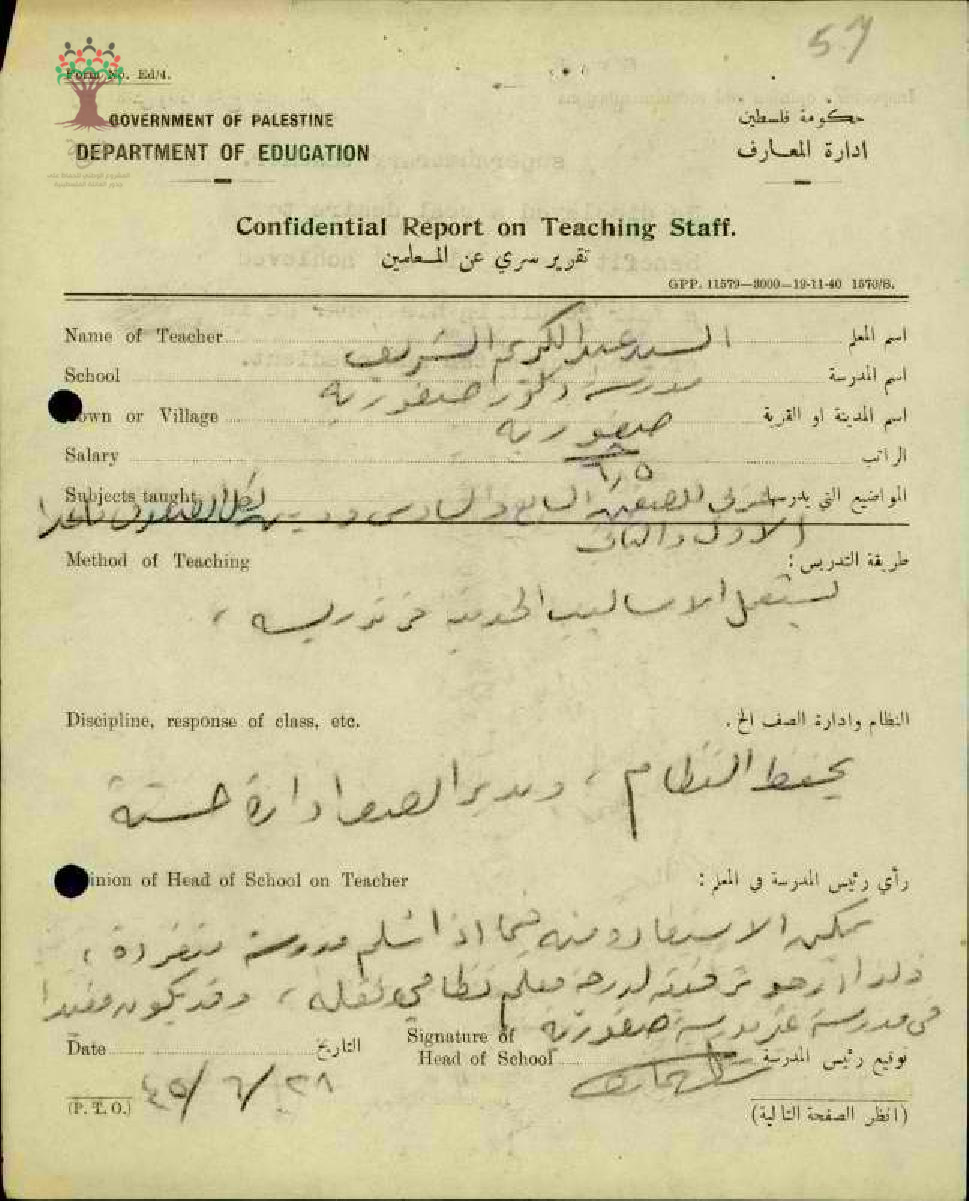 57
Form No. Ed/4.
GOVERNMENT OF PALESTINE
حكومة فلسطين
DEPARTMENT OF EDUCATION
ادارة المعارف
Confidential Report on Teaching Staff.
تقرير سري عن المعلمين
GPP. 11579—3000—19-11-40 1570/B.
Name of Teacher السيد عبد الكريم الشريف اسم المعلم
School مدرسة ذكور صفورية اسم المدرسة
Town or Village صفورية اسم المدينة او القرية
Salary الراتب
Subjects taught للصفين السابع والسادس لكل الصفوف المواضيع التي يدرسها
الاول والثاني
Method of Teaching طريقة التدريس :
يستعمل الاساليب الحديثة في تدريسه ،
Discipline, response of class, etc. النظام وادارة الصف الخ .
يحفظ النظام ، ويدير الصف ادارة حسنة
Opinion of Head of School on Teacher رأي رئيس المدرسة في المعلم :
يمكن الاستفادة منه فيما اذا استلم مدرسة منفردة ،
ولذا ارجو ترقيته لدرجة معلم نظامي ونقله ، وقد يكون مفيدا
في مدرسة غير مدرسة صفورية
Date التاريخ
Signature of Head of School توقيع رئيس المدرسة
٢٨/٦/٤٥
(P. T. O.)
(انظر الصفحة التالية)